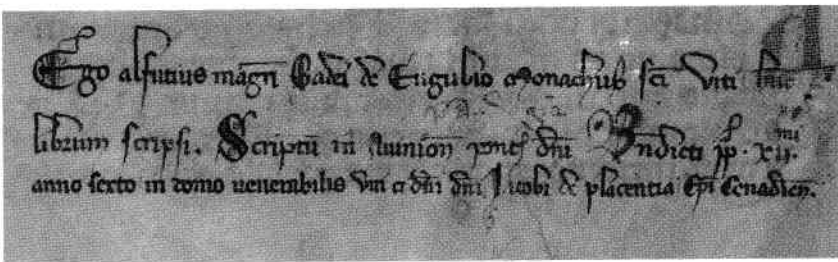 Ego alfutius magr̄i Badei de Eugubio monachus sc̄i Viti
librum scripsi. Scriptū in Auinion̄ pont̄ dn̄i Bn̄dicti pp. xij.
anno sexto in domo uenerabilis Viri et dn̄i dn̄i Jacobi de placentia Ep̄i Cenadien̄.